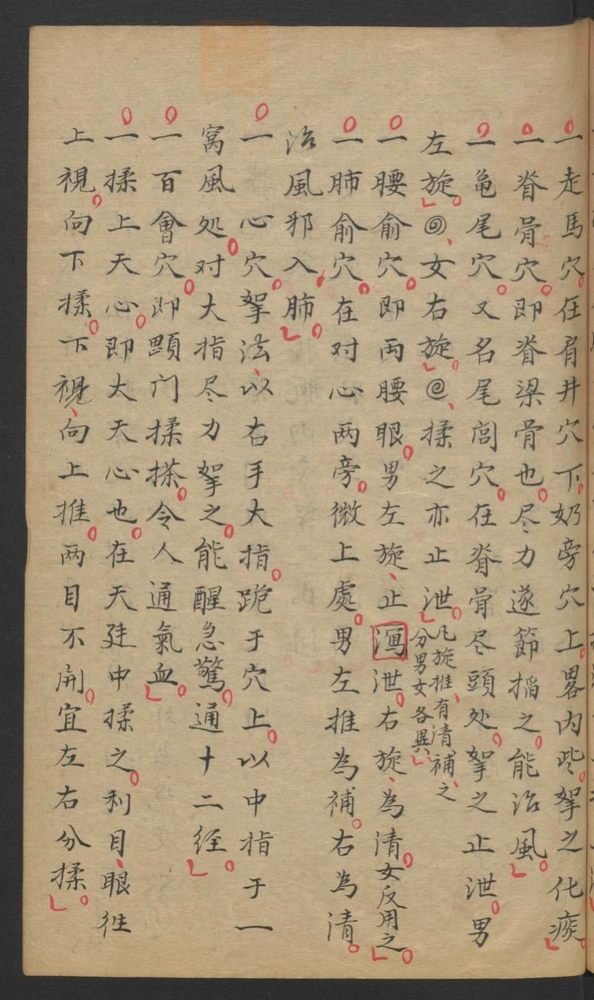 一走馬穴。在肩井穴下、奶旁穴上。畧内些。拏之化痰
一脊骨穴。即脊梁骨也。尽力遂節掐之。能治風。
一龟尾穴。又名尾闾穴。在脊骨尽頭处。拏之止泄。男
左旋。女右旋。揉之亦止泄。凡旋推、有清、補之分男女各異
一腰俞穴。即两腰眼。男左旋、止瀉泄。右旋、為清。女反用之。
一肺俞穴。在对心两旁。微上處。男左推為補。右為清。
治風邪入肺。
一心穴。拏法、以右手大指。跪于穴上。以中指于一
窩風处。对大指尽力拏之。能醒急驚。通十二经。
一百會穴。即顖门揉搽。令人通氣血。
一揉上天心。即大天心也。在天廷中揉之。利目、眼徃
上視。向下揉。下視、向上推。两目不開。宜左右分揉。